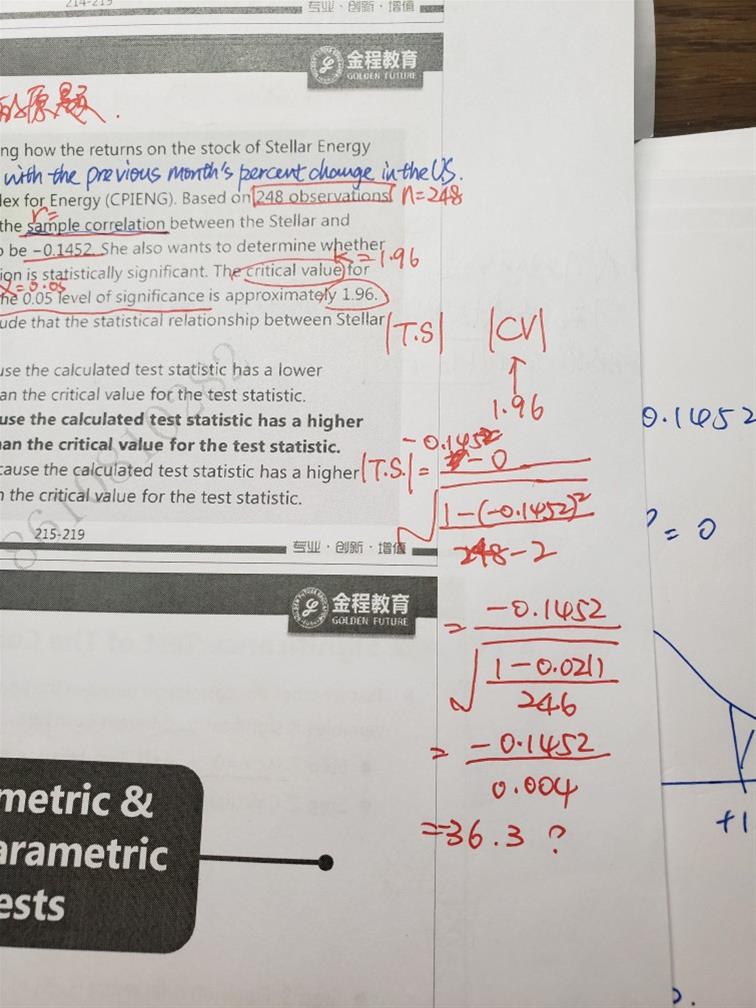 214-219
专业·创新·增值
金程教育
GOLDEN FUTURE
的原题.
ng how the returns on the stock of Stellar Energy
with the previous month's percent change in the US.
lex for Energy (CPIENG). Based on 248 observations n=248
r=
the sample correlation between the Stellar and
o be −0.1452. She also wants to determine whether
=1.96
ion is statistically significant. The critical value for
α=0.05
he 0.05 level of significance is approximately 1.96.
ude that the statistical relationship between Stellar
|T.S| |CV|
↑
1.96
use the calculated test statistic has a lower
an the critical value for the test statistic.
use the calculated test statistic has a higher
han the critical value for the test statistic.
cause the calculated test statistic has a higher
n the critical value for the test statistic.
8610810282
215-219
专业·创新·增值
|T.S.| = -0.1452 -0
√ 1-(-0.1452)²
248-2
= -0.1452
√ 1-0.0211
246
= -0.1452
0.004
=-36.3 ?
金程教育
GOLDEN FUTURE
metric &
arametric
ests
0.1452
= 0
+1